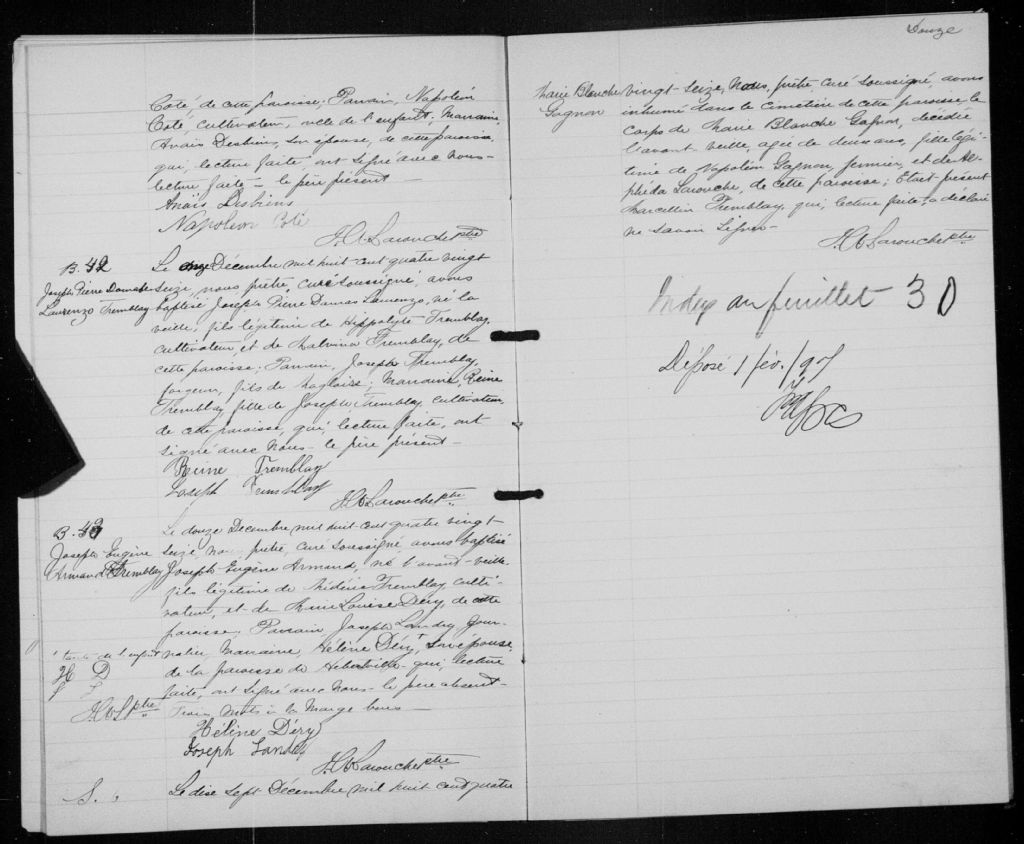 Coté de cette paroisse; Parrain, Napoléon
Coté, cultivateur, oncle de l'enfant, Marraine,
Anais Desbiens, son épouse, de cette paroisse
qui, lecture faite ont signé avec nous-
lecture faite - le père présent -
Anais Desbiens
Napoleon Coté
J.A. Larouche ptre
B. 42
Joseph Pierre Damase
Laurenzo Tremblay
Le onze Décembre mil huit-cent quatre vingt
seize, nous, prêtre, curé soussigné, avons
baptisé Joseph Pierre Damas Laurenzo, né la
veille, fils légitime de Hippolyte Tremblay,
cultivateur, et de Malvina Tremblay, de
cette paroisse; Parrain, Joseph Tremblay,
forgeron, fils de Magloire; Marraine, Reine
Tremblay, fille de Joseph Tremblay, cultivateur,
de cette paroisse, qui, lecture faite, ont
signé avec nous - le père présent -
Reine Tremblay
Joseph Tremblay
J.A. Larouche ptre
B. 43
Joseph Eugène
Armand Tremblay
Le douze Décembre mil huit cent quatre vingt-
seize, nous, prêtre, curé soussigné avons baptisé
Joseph Eugène Armand, né l'avant-veille,
fils légitime de Tremblay, culti-
vateur, et de Marie Louise Déry, de cette
paroisse. Parrain Joseph Landry, jour-
nalier, Marraine, Hélène Déry, son épouse,
de la paroisse de Hébertville - qui, lecture
faite, ont signé avec nous - le père absent -
Trois mots à la marge bons -
tante de l'enfant
H D
J L
J.A.L. ptre
Hélène Déry
Joseph Landry
J.A. Larouche ptre
S.
Le dise sept Décembre mil huit cent quatre
Douze
Marie Blanche
Gagnon
vingt-seize, Nous, prêtre, curé soussigné, avons
inhumé dans le cimetière de cette paroisse le
corps de Marie Blanche Gagnon, décédée
l'avant veille, agée de deux ans, fille légi-
time de Napoléon Gagnon, fermier, et de Al-
phéda Larouche, de cette paroisse; Etait présent
Marcellin Tremblay, qui, lecture faite, a déclaré
ne savoir signer -
J.A. Larouche ptre
Index au feuillet 30
Déposé 1 fév. /97